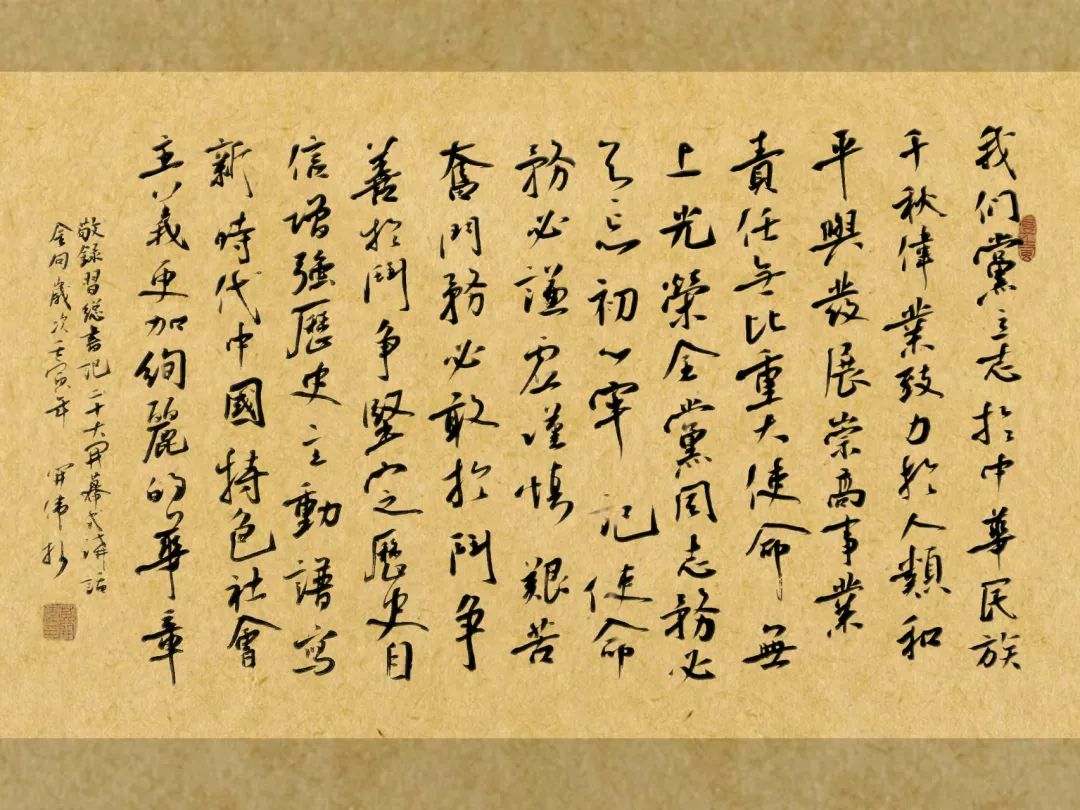 我们黨立志於中華民族
千秋偉業致力於人類和
平與發展崇高事業
責任無比重大使命無
上光榮全黨同志務必
不忘初心牢記使命
務必謙虛謹慎艱苦
奮鬥務必敢於鬥争
善於鬥争堅定歷史自
信增強歷史主動譜寫
新時代中國特色社會
主義更加絢麗的華章
敬録習總書記二十大開幕式講話
金句歲次壬寅年